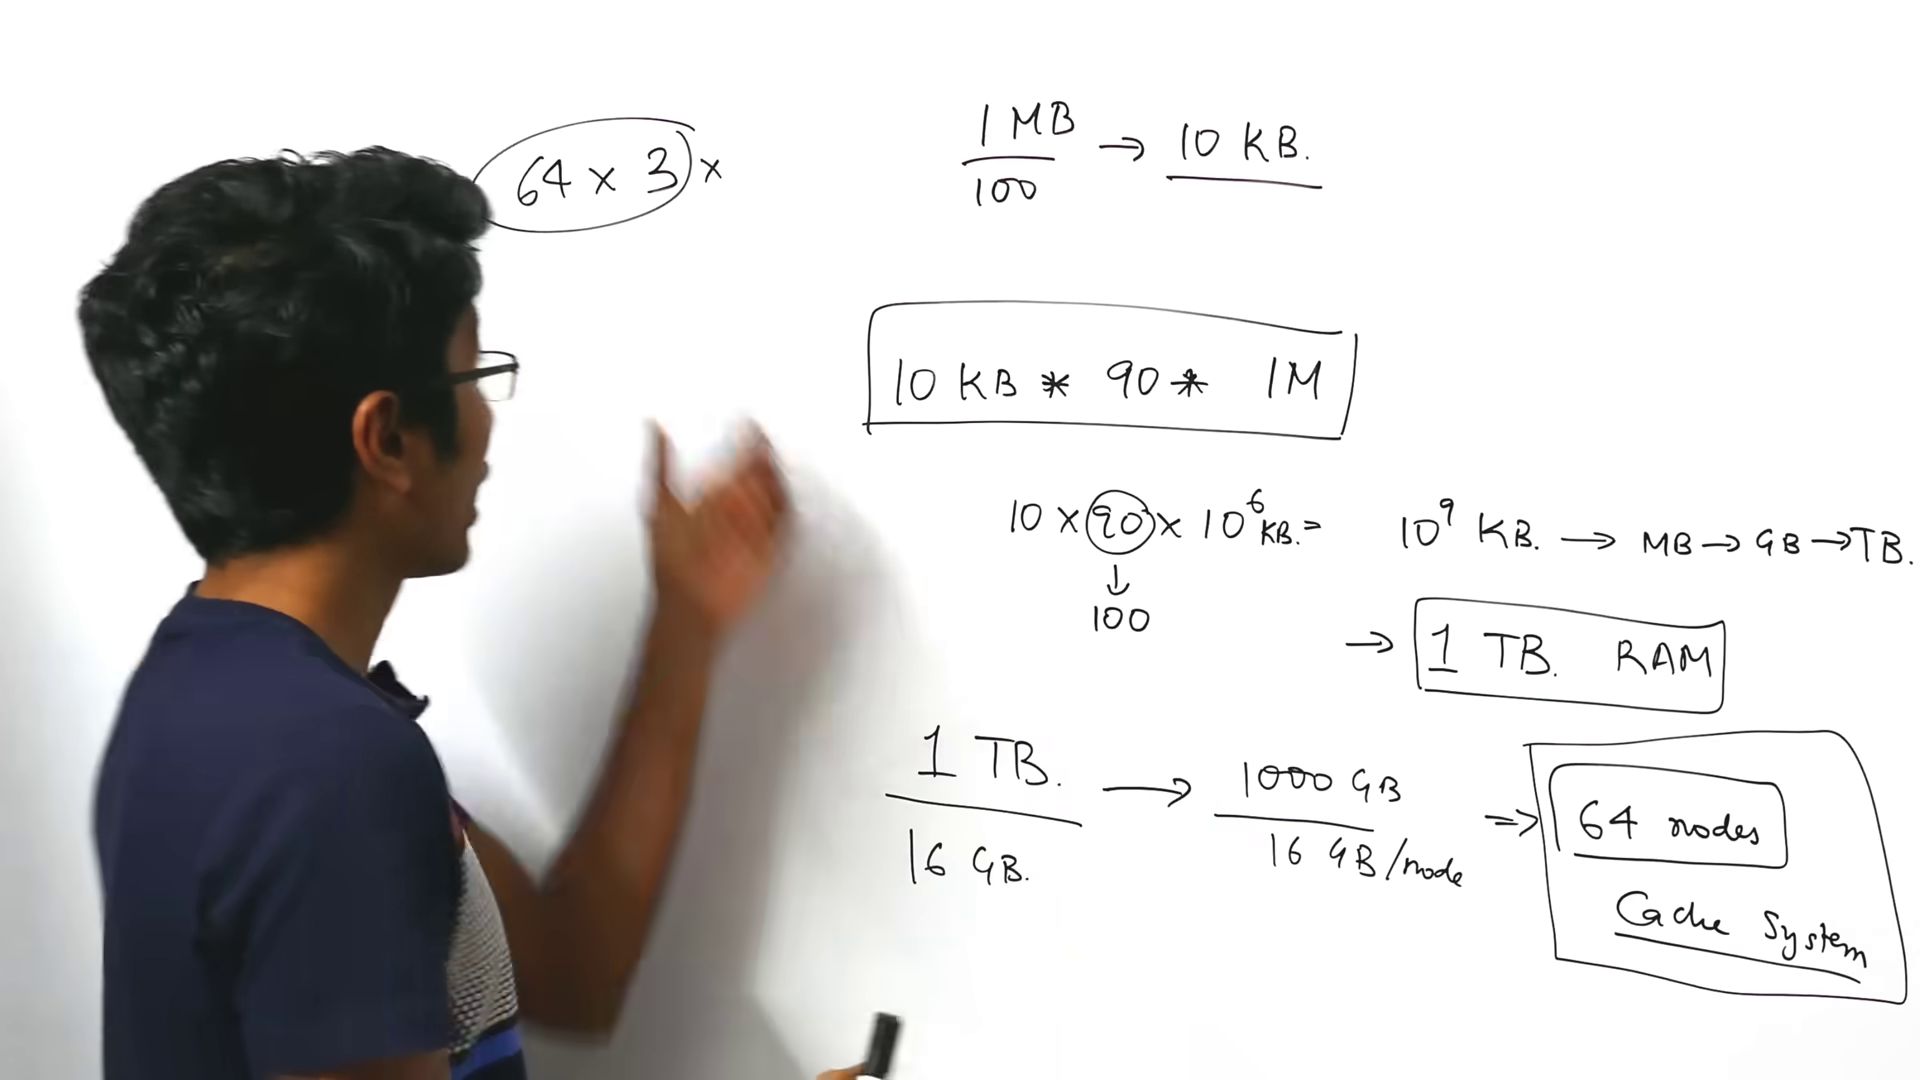 64 x 3 x
1 MB
100
→ 10 KB.
10 KB * 90 * 1M
10 x 90 x 10⁶ KB. = 10⁹ KB. → MB → GB → TB.
↓
100
→ 1 TB. RAM
1 TB.
16 GB.
→ 1000 GB
16 GB/node
⇒ 64 nodes
Cache System